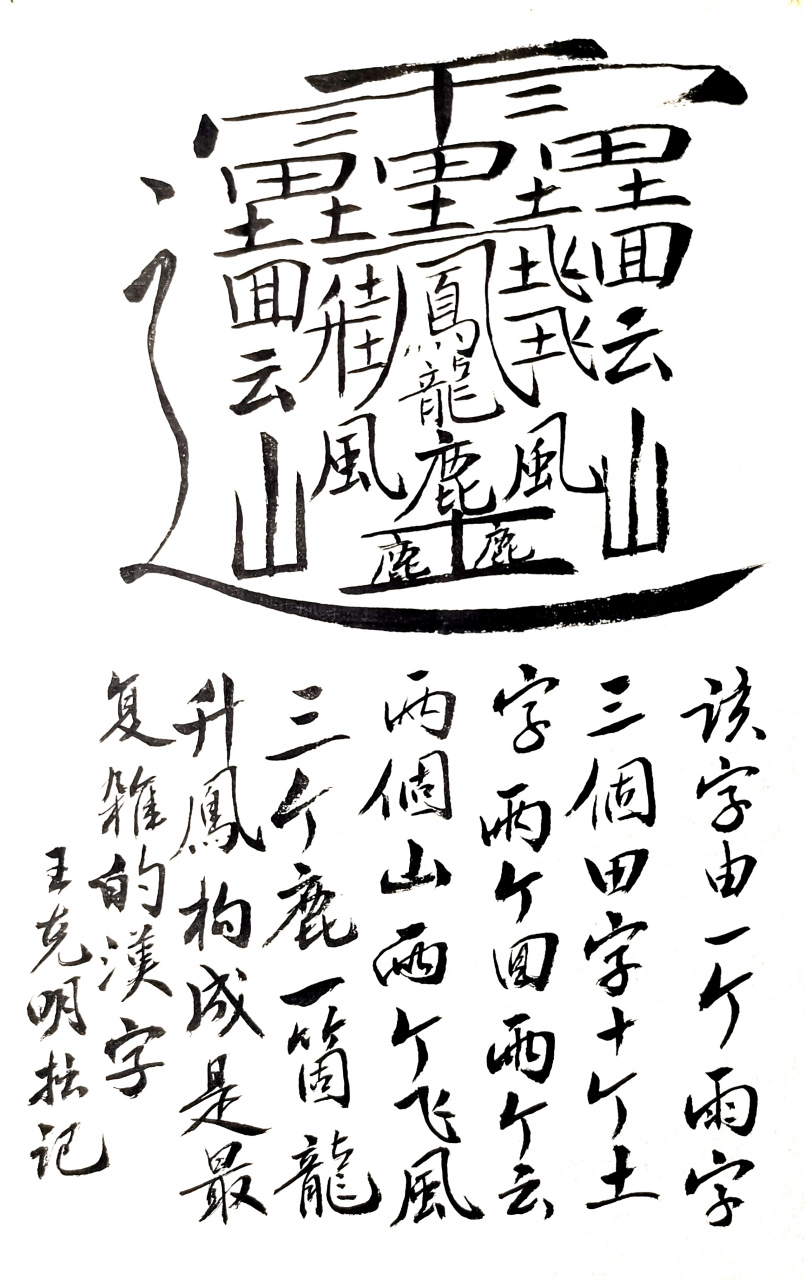 该字由一个雨字
三個田字十个土
字两个回两个云
两個山两个飞風
三个鹿一箇龍
升鳳构成是最
复雜的漢字
王克明拙记